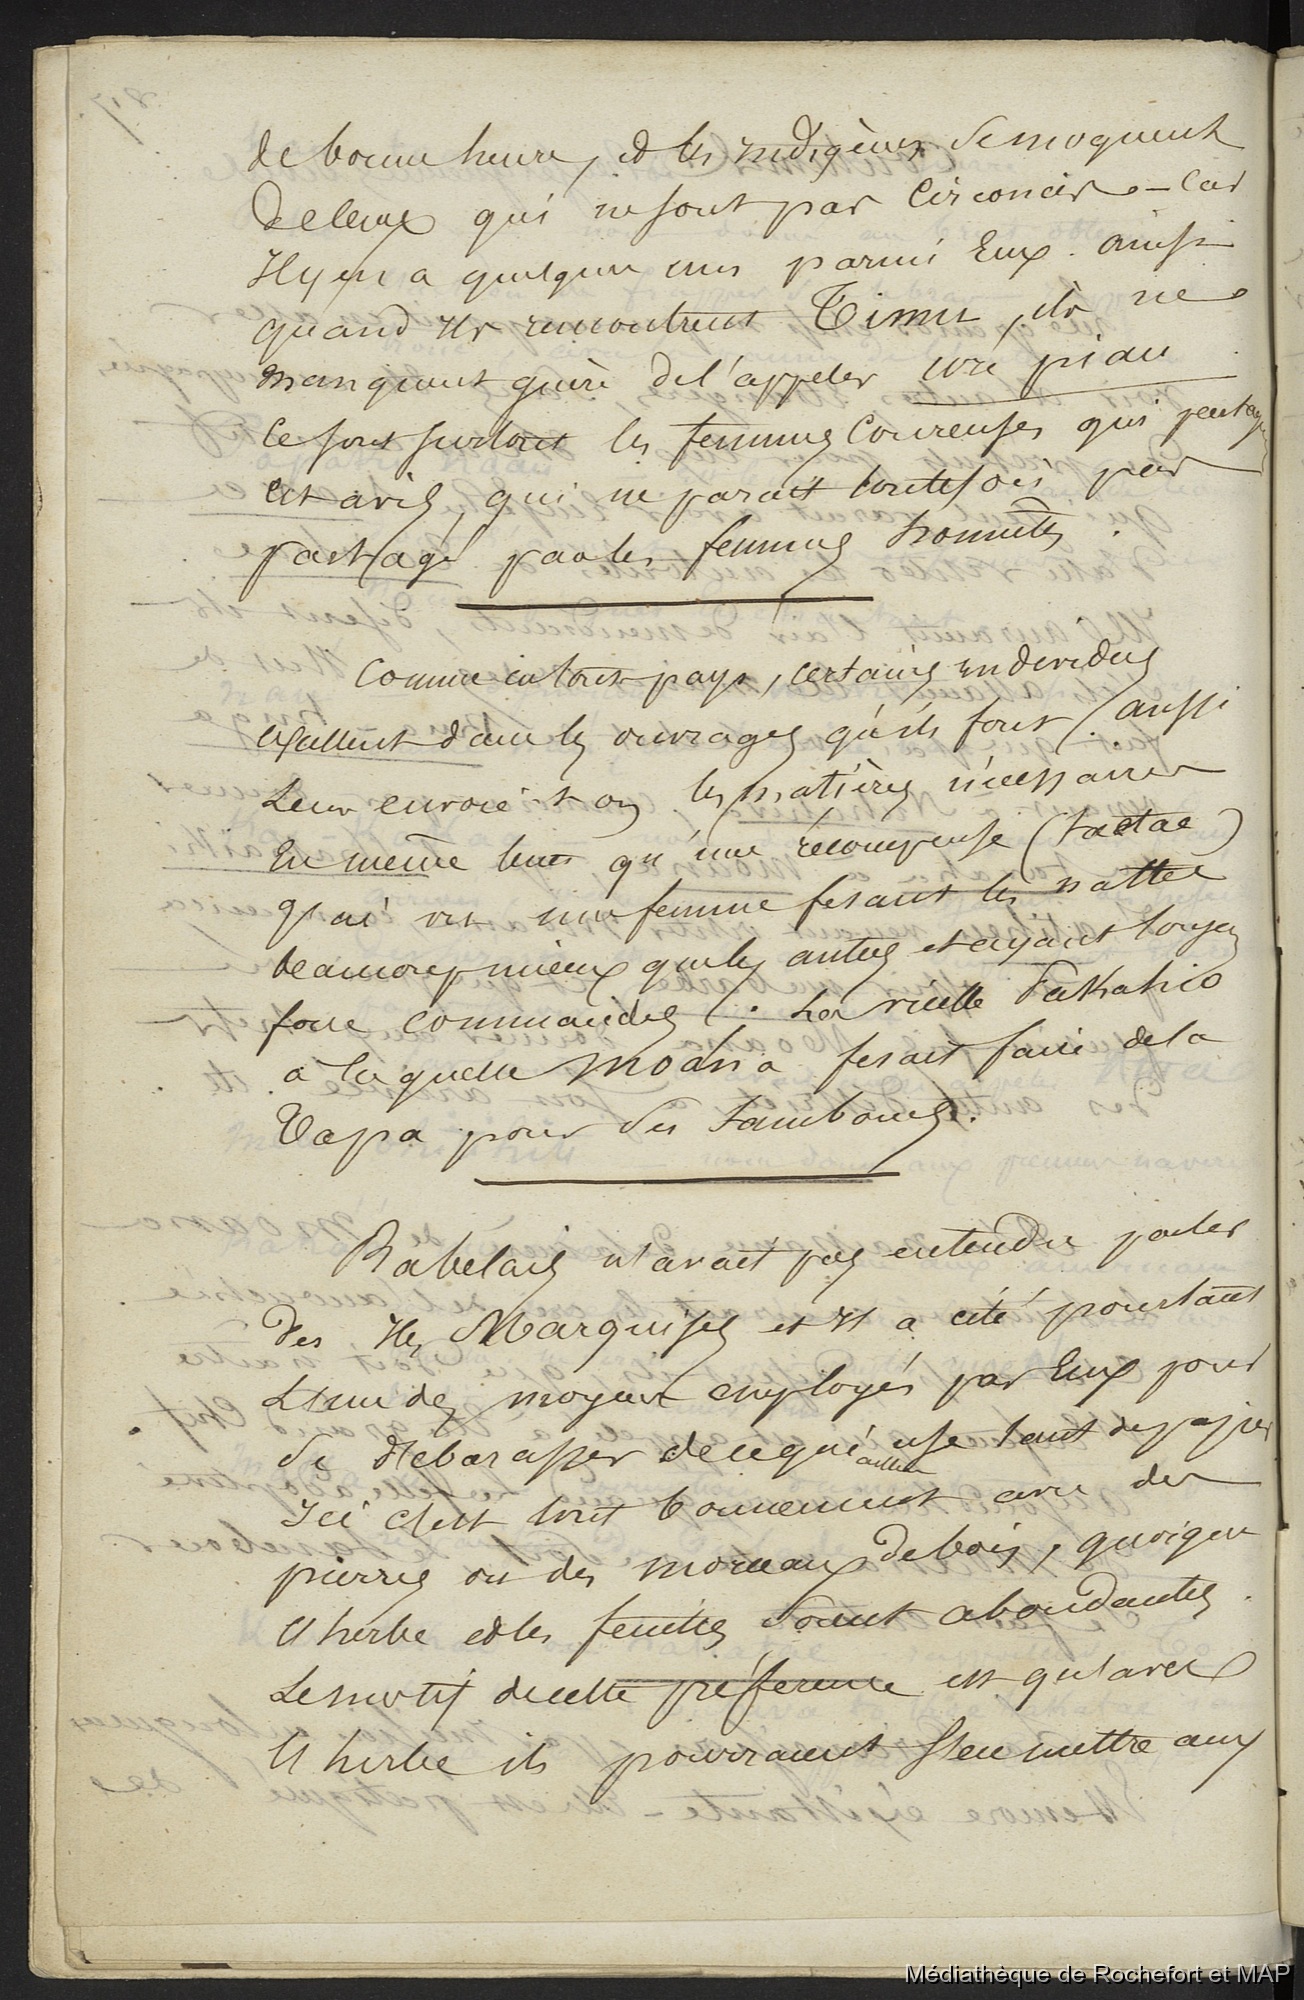 de bonne heure, et les indigènes se moquent
de ceux qui ne sont pas circoncis - Car
il y en a quelques uns parmi eux. ainsi
quand ils rencontrent Timu, ils ne
manquent guère de l'appeler piau
ce sont surtout les femmes coureuses qui
cet avis, qui ne parait toutefois pas
partagé par les femmes honnêtes.
Comme en tout pays, certains individus
excellent dans les ouvrages qu'ils font. aussi
leur envoie t on les matières nécessaires
en même tems qu'une récompense (taetae)
j'ai vu une femme fesant les nattes
beaucoup mieux que les autres et ayant toujours
force commandes. La vieille Pakahio
a laquelle Moana fesait faire de la
Tapa pour ses tambours.
Rabelais n'avait pas entendu parler
des Iles Marquises et il a cité pourtant
l'un des moyens employés par Eux pour
se débarasser de ce qui use tant de papier
ailleurs
Ici c'est tout bonnement avec des
pierres ou des morceaux de bois, quoique
l'herbe et les feuilles soient abondantes.
Le motif de cette préférence est qu'avec
l'herbe ils pourraient s'en mettre aux
Médiathèque de Rochefort et MAP